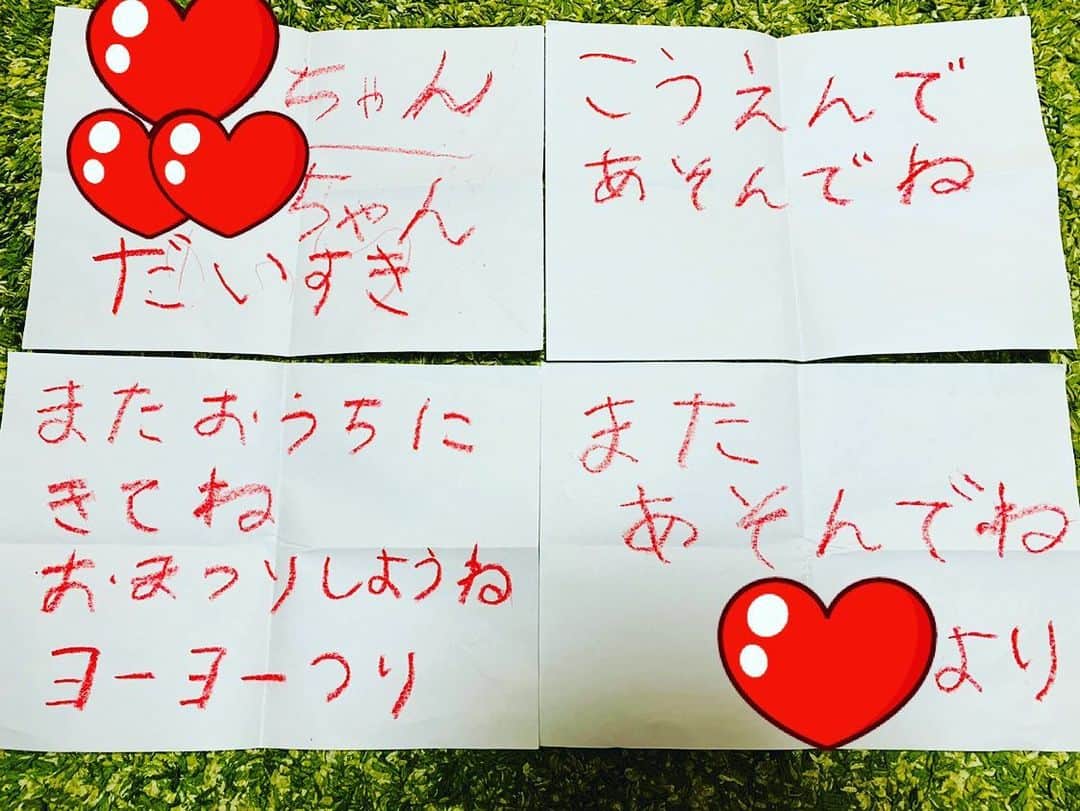 ちゃん
ちゃん
だいすき
こうえんで
あそんでね
またおうちに
きてね
おまつりしようね
ヨーヨーつり
また
あそんでね
より